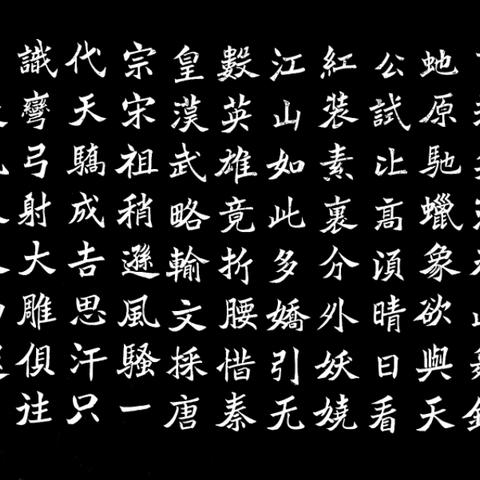 虵原馳蠟象欲與天
公試比高湏晴日看
紅裝素裏分外妖嬈
江山如此多嬌引无
數英雄竟折腰惜秦
皇漢武略輸文採唐
宗宋祖稍遜風騷一
代天驕成吉思汗只
識彎弓射大雕俱往